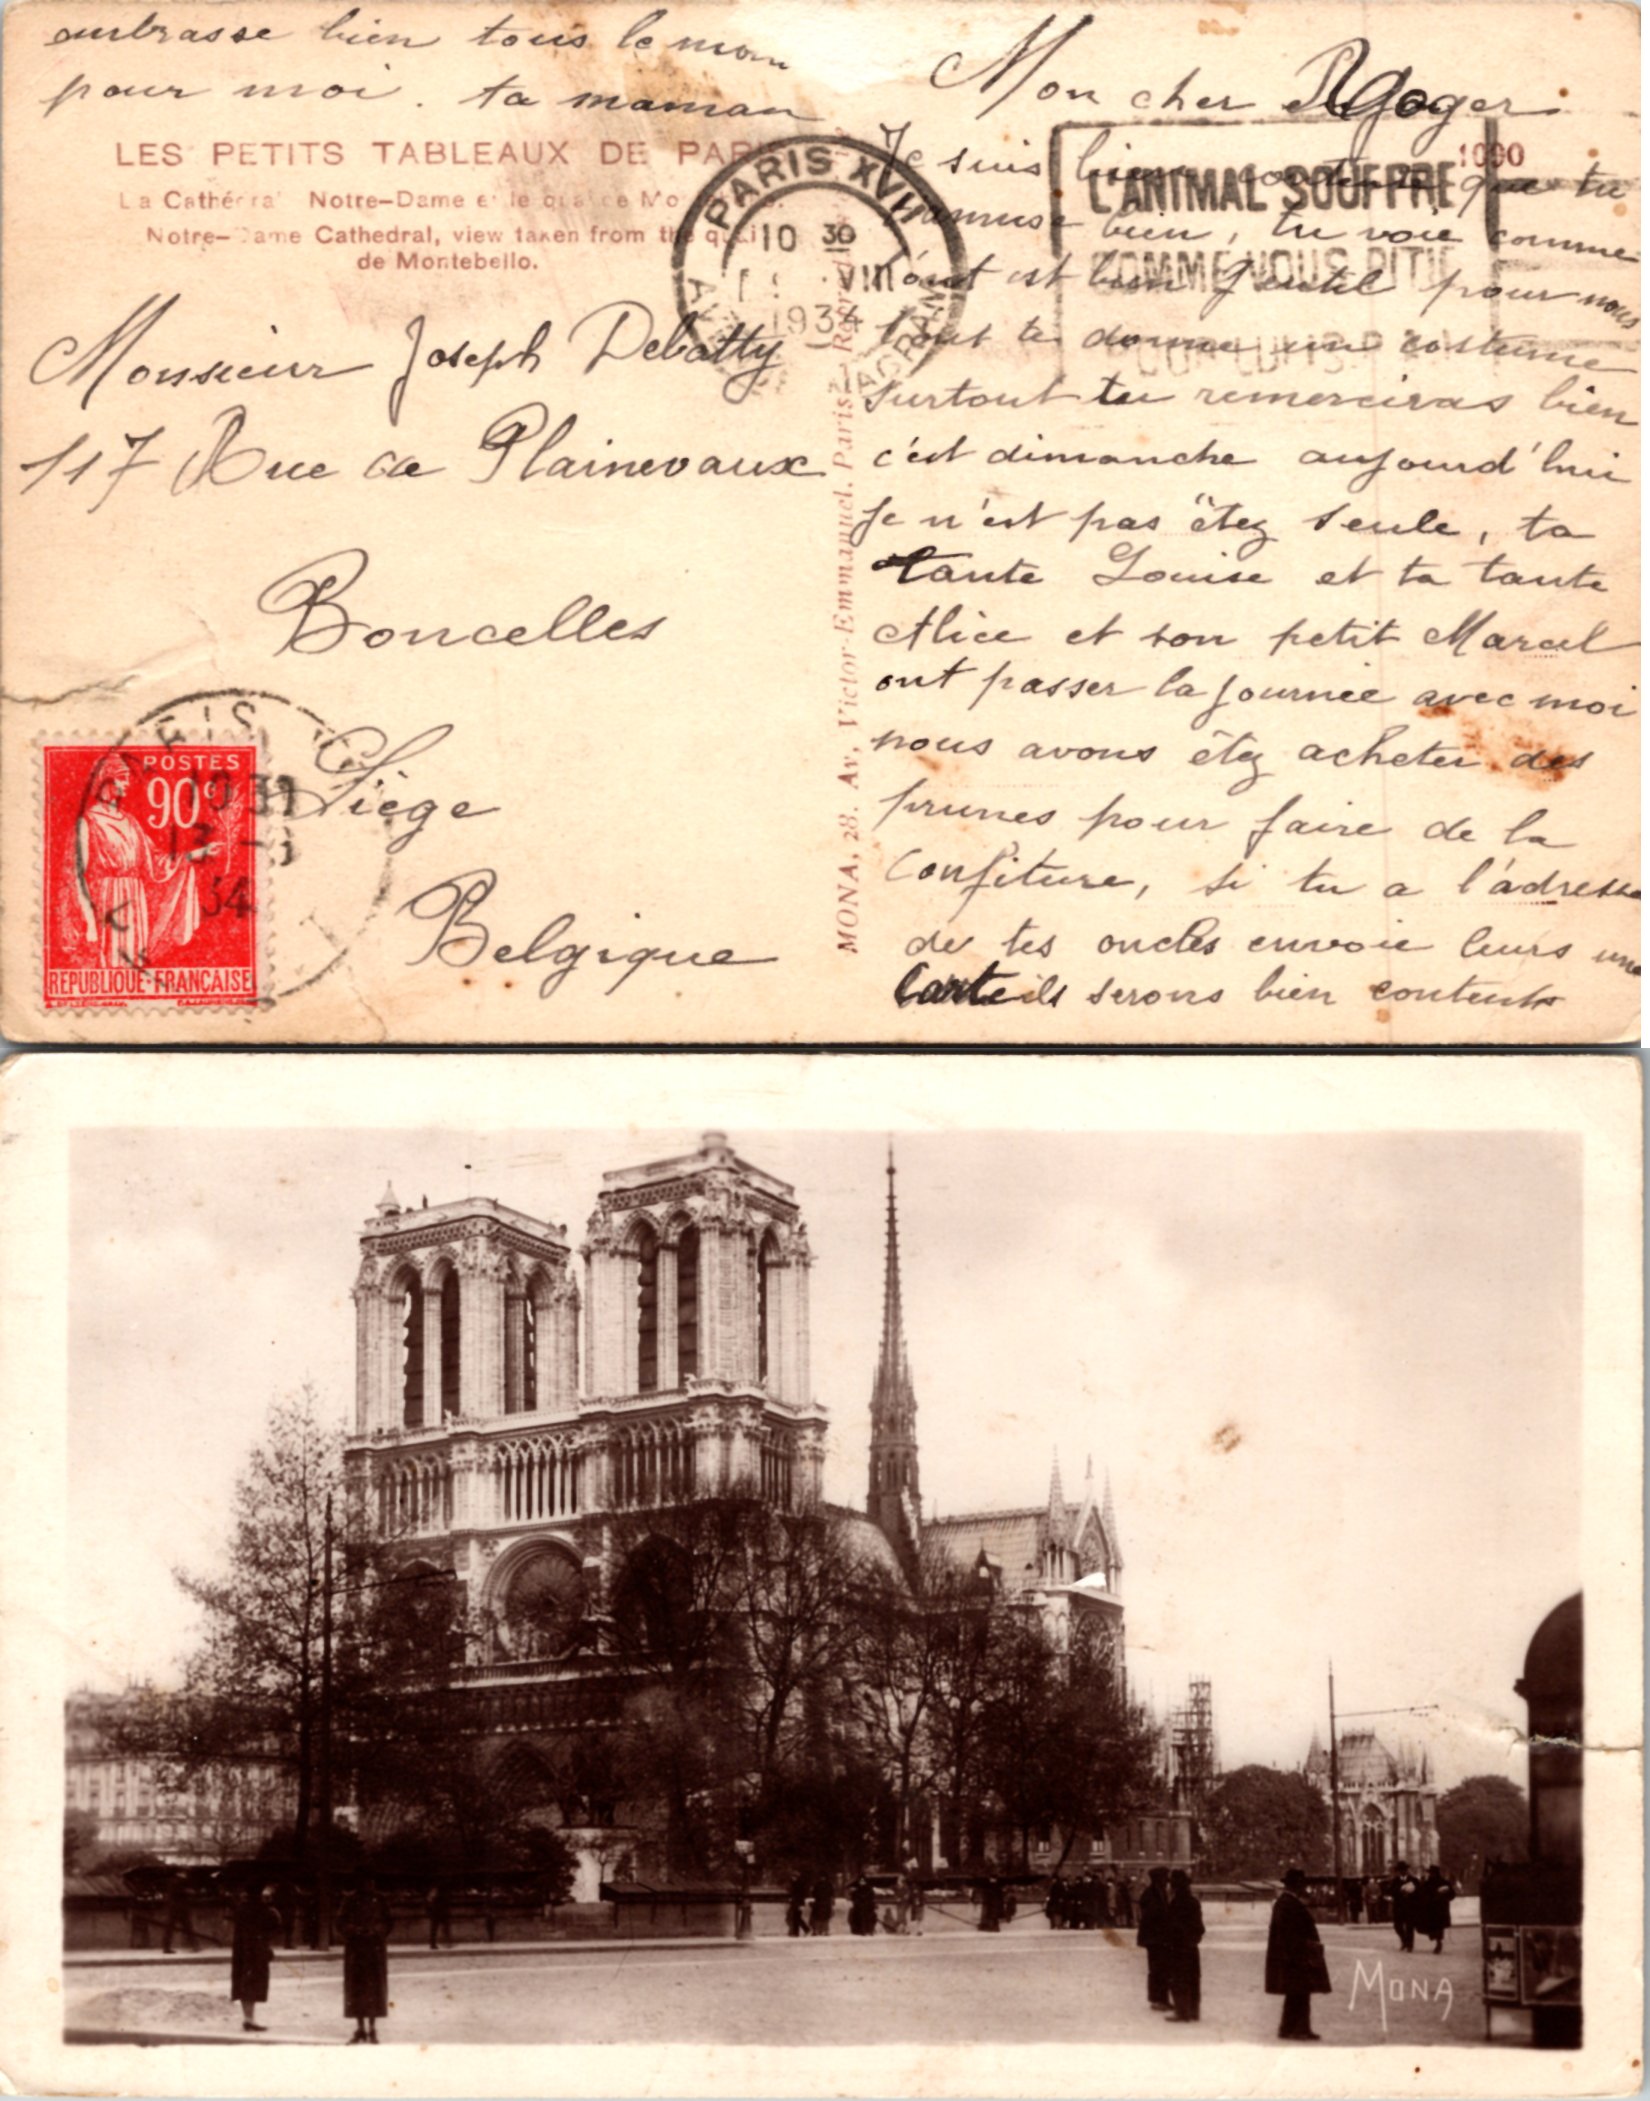 embrasse bien tous le mon
pour moi. ta maman
LES PETITS TABLEAUX DE PARIS
La Cathédral Notre-Dame et le quai de Mo
Notre-Dame Cathedral, view taken from the quai
de Montebello.
PARIS XVII
10 30
VIII
1934
AV. WAGRAM
1090
L'ANIMAL SOUFFRE
COMME NOUS PITIE
Monsieur Joseph Debatty
117 Rue de Plainevaux
Boncelles
Liège
Belgique
POSTES
90c
REPUBLIQUE-FRANÇAISE
PARIS
10 30
34
MONA, 28, Av. Victor-Emmanuel. Paris
Mon cher Roger
Je suis bien contente que tu
t'amuse bien, tu voie comme
est bien gentil pour nous
te donne un costume
surtout tu remerciras bien
c'est dimanche aujourd'hui
je n'est pas êtez seule, ta
tante Louise et ta tante
Alice et son petit Marcel
ont passer la journée avec moi
nous avons êtez acheter des
prunes pour faire de la
confiture, si tu a l'adresse
de tes oncles envoie leurs une
carte ils serons bien contents
MONA